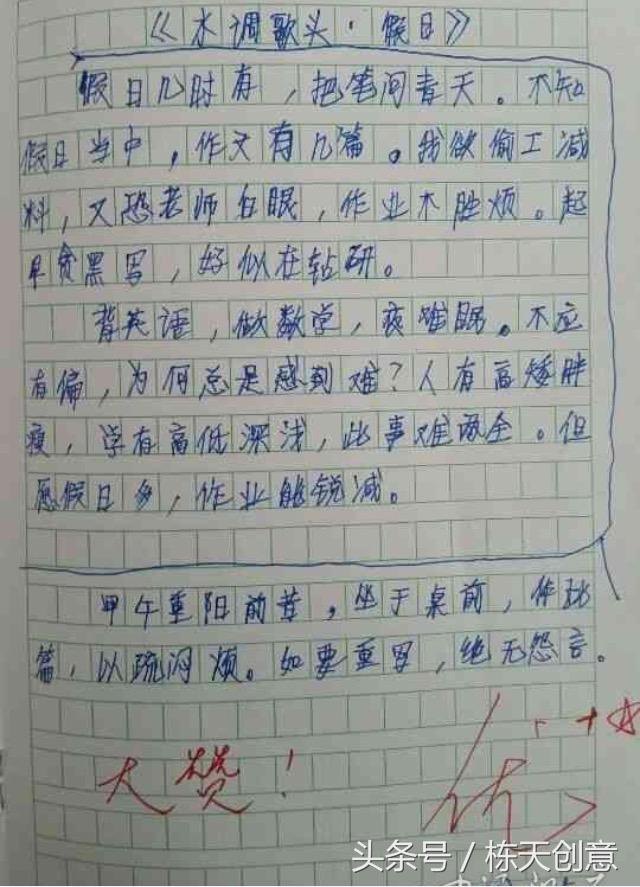 《水调歌头·假日》
假日几时有，把笔问青天。不知
假日当中，作文有几篇。我欲偷工减
料，又恐老师白眼，作业不胜烦。起
早贪黑写，好似在钻研。
背英语，做数学，夜难眠。不应
有偏，为何总是感到难？人有高矮胖
瘦，学有高低深浅，此事难两全。但
愿假日多，作业能锐减。
甲午重阳前昔，坐于桌前，作此
篇，以疏闷烦。如要重写，绝无怨言。
大赞！
优
头条号 / 栋天创意